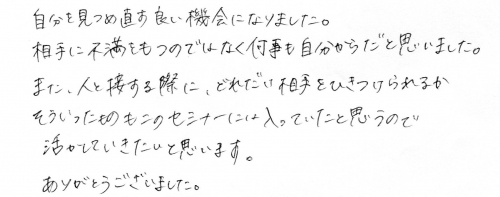 自分を見つめ直す良い機会になりました。
相手に不満をもつのではなく何事も自分からだと思いました。
また、人と接する際に、どれだけ相手をひきつけられるか
そういったものもこのセミナーには入っていたと思うので
活かしていきたいと思います。
ありがとうございました。